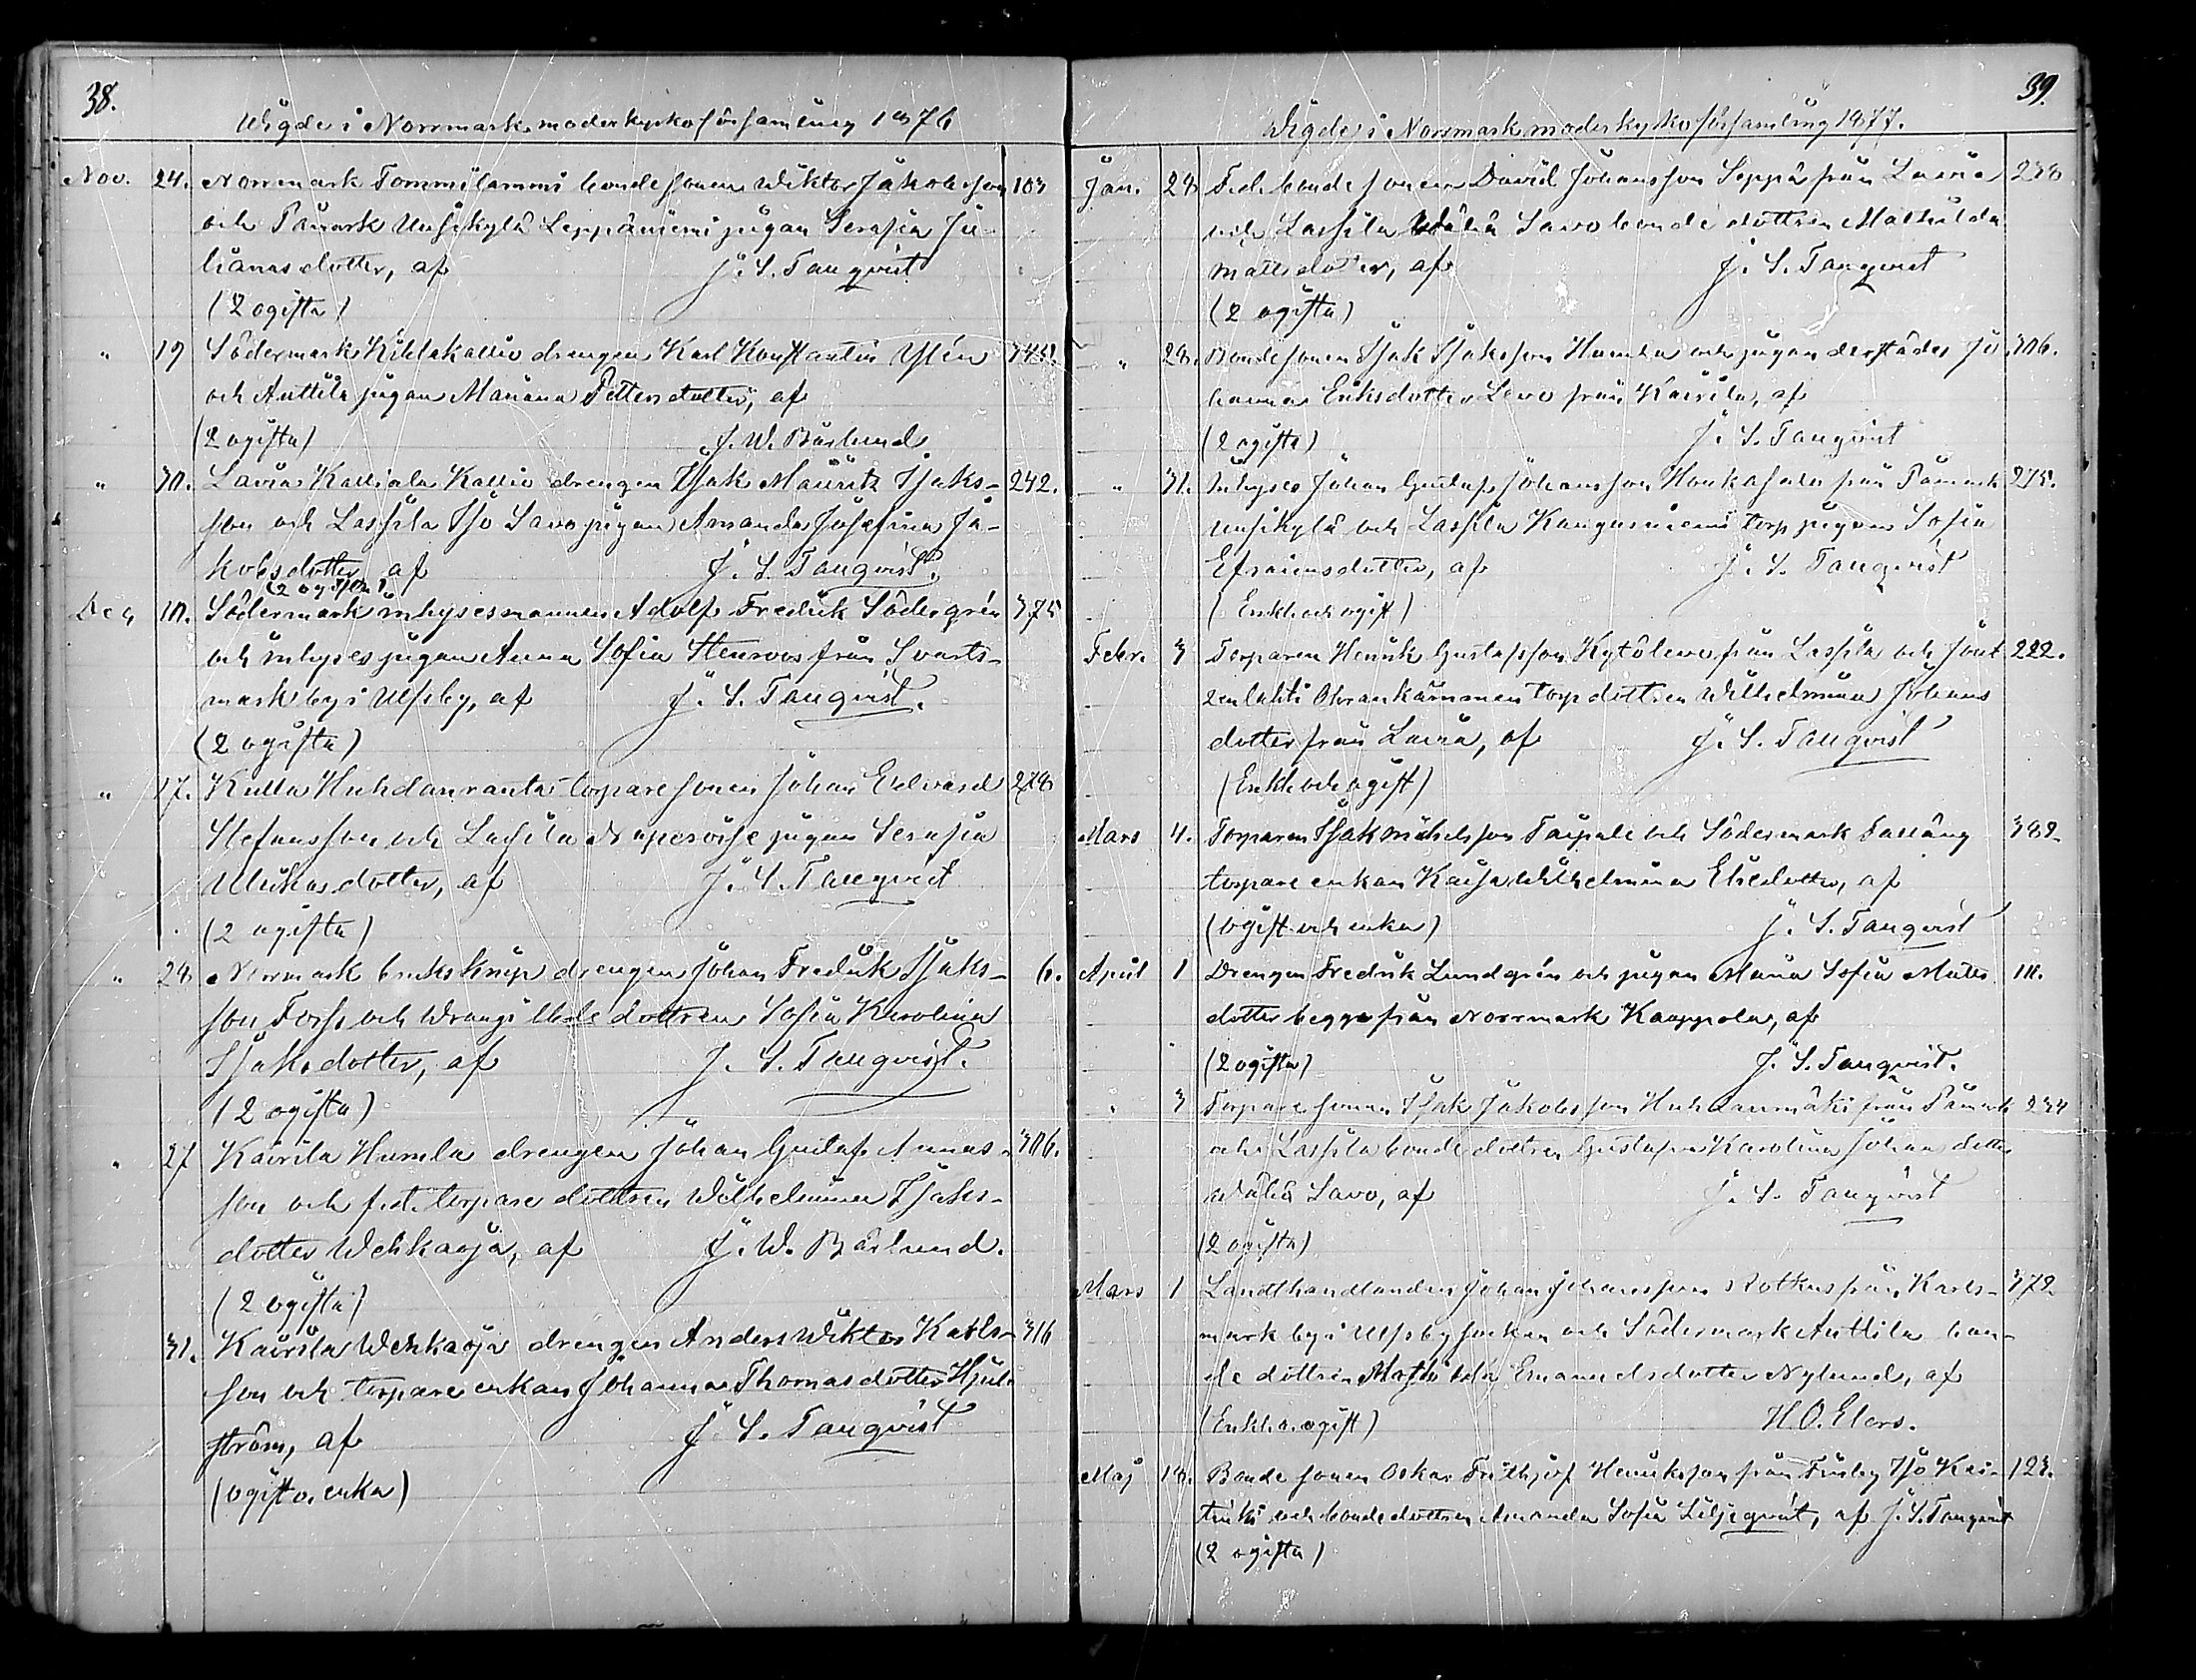 38.
Wigde i Norrmarks moderkyrkoförsamling 1876
Nov. 24. Norrmark Tommilammi bondesonen Wiktor Jakobsson 103
och Påmark Uusikylä Leppäniemi pigan Serafia Jo-
hansdotter, af J. S. Tanqvist
(2 ogifta)
" 19 Södermark Kiildakallio drengen Karl Konstantin Ylén
och Anttila pigan Mariana Pettersdotter, af
(2 ogifta) J. W. Bärlund
" 30. Lavia Kalliala Kallio drengen Isak Mauritz Isaks- 242.
son och Lassila Iso Savo pigan Amanda Josefina Ja-
kobsdotter, af J. S. Tanqvist.
(2 ogifta)
Dec. 10. Södermark inhysesmannen Adolf Fredrik Södergrén 375
och inhyses pigan Anna Sofia Stenroos från Svarts-
mark by i Ulfsby, af J. S. Tanqvist.
(2 ogifta)
" 17. Kulla Huhdanranta torparesonen Johan Edvard 278
Stefansson och Lassila pigan Serafia
Ulrikasdotter, af J. S. Tanqvist
(2 ogifta)
" 28 Norrmark bruks drengen Johan Fredrik Isaks- 6.
son Forss och dottren Sofia Karolina
Isaksdotter, af J. S. Tanqvist.
(2 ogifta)
" 27 Kairila Humla drengen Johan Gustaf Annas- 306.
son och f.d. torpare dottren Wilhelmina Isaks-
dotter Wehkaoja, af J. W. Bärlund.
(2 ogifta)
31. Kairila Wehkaoja drengen Anders Wiktor Karls- 316
son och torpare enkan Johanna Thomasdotter Hjul-
ström, af J. S. Tanqvist
(ogift o. enka)
39.
Wigde i Norrmark moderkyrkoförsamling 1877.
Jan. 28 F.d. bondesonen David Johansson Seppä från Lavia 238
och Lassila Wähä Savo bondedottren Mathilda
Mattsdotter, af J. S. Tanqvist
(2 ogifta)
" 28. Bondesonen Isak Isaksson Humla och pigan derstädes Jo- 306.
hanna Eriksdotter Levo från Kairila, af
(2 ogifta) J. S. Tanqvist
" 31. Inhyses Johan Gustaf Johansson Honkasalo från Påmark 275.
Uusikylä och Lassila Kangasniemi torp pigan Sofia
Efraimsdotter, af J. S. Tanqvist
(Enkl. och ogift)
Febr. 3 Torparen Henrik Gustafsson Kytölevo från Lassila och Jout- 222.
senlahti torpdottren Wilhelmina Johans
dotter från Lavia, af J. S. Tanqvist
(Enkl. och ogift)
Mars 4. Torparen Isak Mickelsson Taipale och Södermark Falläng 382.
torpare enkan Kaisa Wilhelmina Eliedotter, af
(ogift och enka) J. S. Tanqvist
April 1 Drengen Fredrik Lundgrén och pigan Maria Sofia Matts 111.
dotter begge från Norrmark Kauppola, af
(2 ogifta) J. S. Tanqvist.
" 3 Torparesonen Isak Jakobsson Huhdanmäki från Påmark 234
och Lassila bondedottren Gustafva Karolina Johansdotter
Wähä Savo, af J. S. Tanqvist
(2 ogifta)
Mars 1 Landthandlanden Johan Johansson Rotkus från Karls- 372.
mark by i Ulfsby socken och Södermark Anttila bon-
dedottren Mathilda Emanuelsdotter Nylund, af
(Enkl. o. ogift) H. O. Elers.
Maj 18. Bondesonen Oskar Frithjof Henriksson från Finby Iso Kei- 123.
och bondedottren Amanda Sofia Liljeqvist, af J. S. Tanqvist
(2 ogifta)